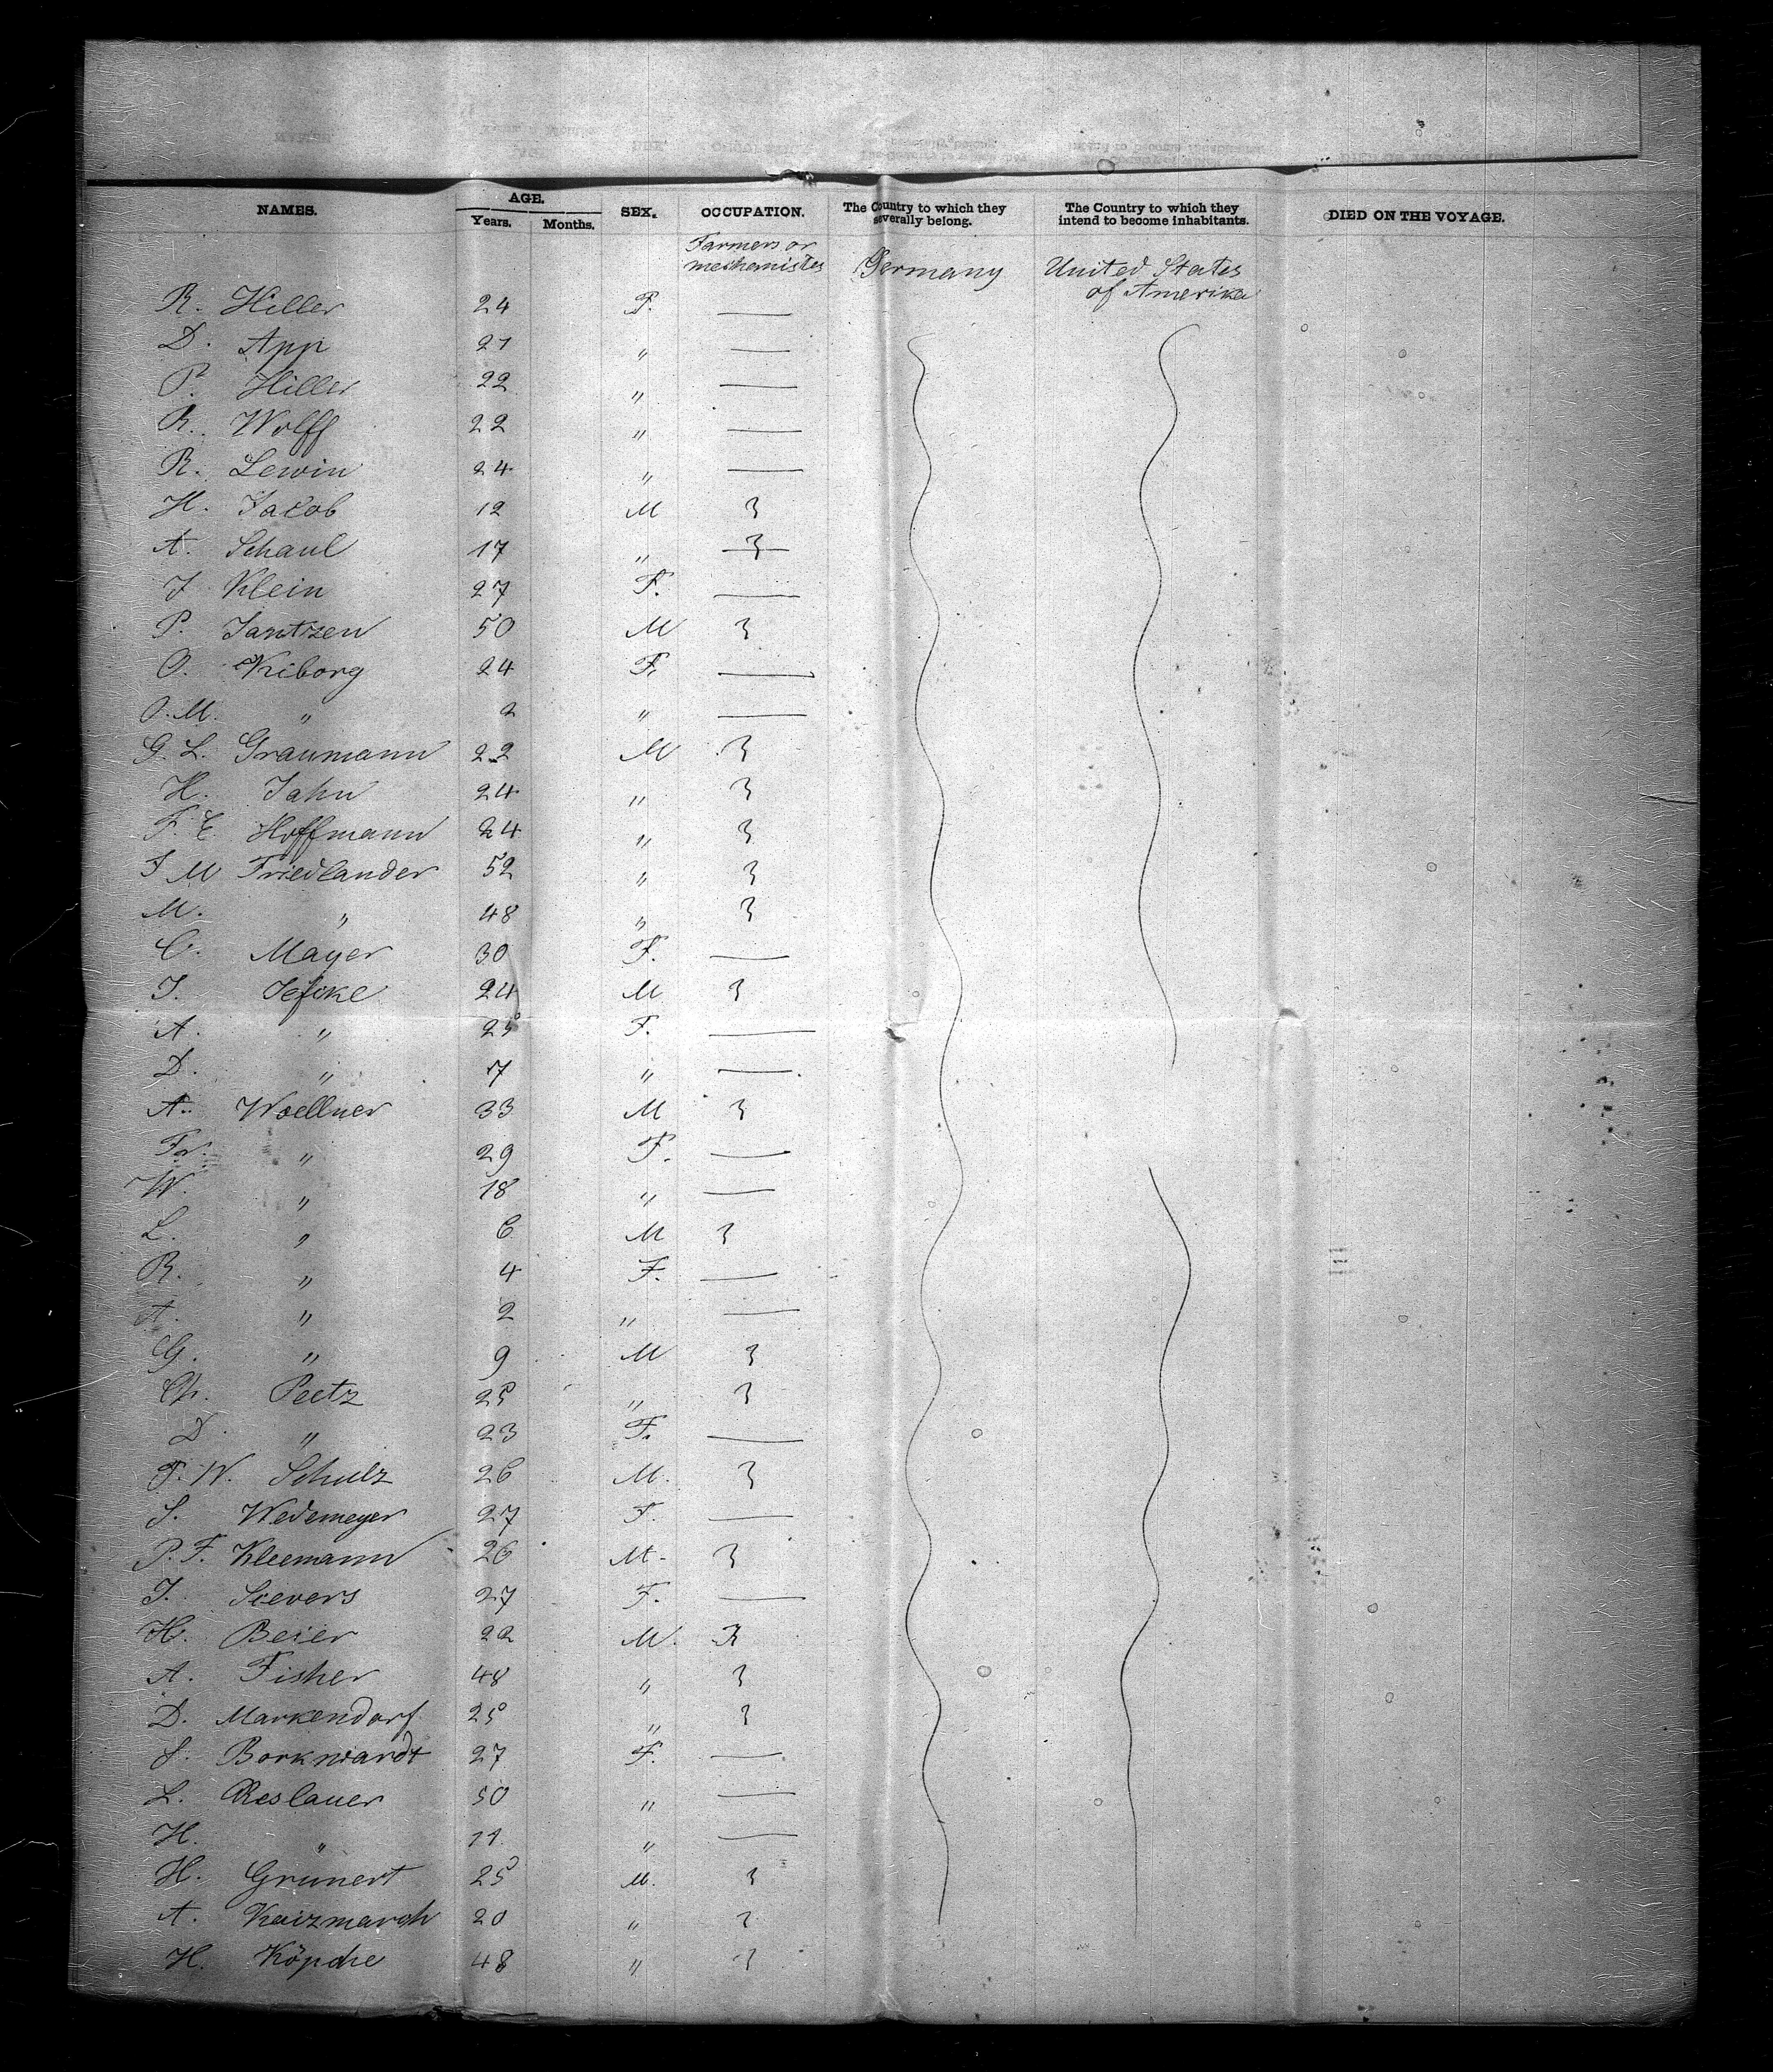 NAMES. AGE. SEX. OCCUPATION. The Country to which they severally belong. The Country to which they intend to become inhabitants. DIED ON THE VOYAGE.
Years. Months.
Farmers or mechanistes Germany United States of Amerika
R. Hiller 24 F. —
D. App 21 " —
P. Hiller 22 " —
R. Wolff 22 " —
R. Lewin 24 " —
H. Jacob 12 M 3
A. Schaul 17 " 3
J Klein 27 F. —
P. Jantzen 50 M 3
O. Kiborg 24 F. —
O. M. " 2 " —
G. L. Graumann 22 M 3
H. Jahn 24 " 3
F. E. Hoffmann 24 " 3
J M Friedlander 52 " 3
M. " 48 " 3
C. Mayer 30 F. —
J. 24 M 3
A. " 25 F. —
D. " 7 " —
A. Woellner 33 M 3
Fr. " 29 F. —
W. " 18 " —
L. " 6 M 3
R. " 4 F. —
A. " 2 " —
G. " 9 M 3
Ch. Peetz 25 " 3
D. " 23 F. —
F. W. Schulz 26 M. 3
S. Wedemeyer 27 F. —
P. F. Kleemann 26 M. 3
J. Sievers 27 F. —
H. Beier 22 M. 3
A. Fisher 48 " 3
D. Markendorf 25 " 3
S. Borkwardt 27 F. —
L. 50 " —
H. " 11 " —
H. Grünert 25 M. 3
A. 20 " 3
H. Köpcke 48 " 3